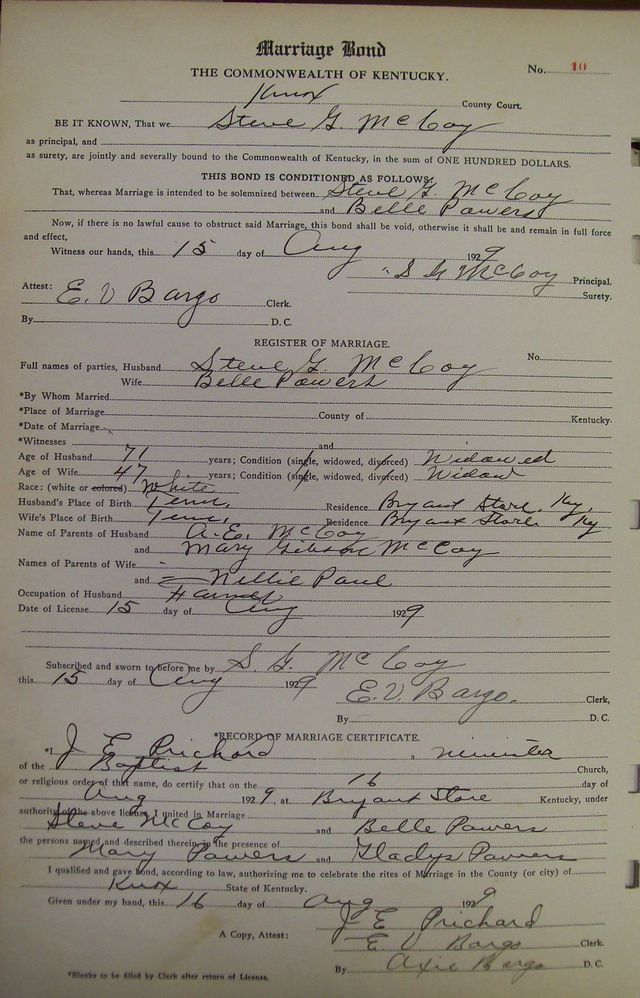 Marriage Bond
THE COMMONWEALTH OF KENTUCKY.
No. 10
Knox County Court.
BE IT KNOWN, That we Steve G. McCoy
as principal, and
as surety, are jointly and severally bound to the Commonwealth of Kentucky, in the sum of ONE HUNDRED DOLLARS.
THIS BOND IS CONDITIONED AS FOLLOWS:
That, whereas Marriage is intended to be solemnized between Steve G. McCoy
and Belle Powers
Now, if there is no lawful cause to obstruct said Marriage, this bond shall be void, otherwise it shall be and remain in full force
and effect,
Witness our hands, this 15 day of Aug 1929
S G McCoy Principal.
Attest: E. V Bargo Clerk. Surety.
By D. C.
REGISTER OF MARRIAGE.
Full names of parties, Husband Steve G. McCoy No.
Wife Belle Powers
*By Whom Married
*Place of Marriage County of Kentucky.
*Date of Marriage
*Witnesses and
Age of Husband 71 years; Condition (single, widowed, divorced) Widowed
Age of Wife 47 years; Condition (single, widowed, divorced) Widow
Race: (white or colored) White
Husband's Place of Birth Tenn. Residence Bryant Store, Ky.
Wife's Place of Birth Tenn. Residence Bryant Store Ky
Name of Parents of Husband A. E. McCoy
and Mary Gibson McCoy
Names of Parents of Wife -
and Nillie Paul
Occupation of Husband
Date of License 15 day of Aug 1929
Subscribed and sworn to before me by S. G. McCoy
this 15 day of Aug 1929
E. V. Bargo. Clerk,
By D. C.
*RECORD OF MARRIAGE CERTIFICATE.
*I J E Prichard, a minister
of the Baptist Church,
or religious order of that name, do certify that on the 16 day of
Aug 1929, at Bryant Store Kentucky, under
authority of the above license, I united in Marriage
Steve McCoy and Belle Powers
the persons named and described therein, in the presence of
Mary Powers and Gladys Powers
I qualified and gave bond, according to law, authorizing me to celebrate the rites of Marriage in the County (or city) of
Knox State of Kentucky.
Given under my hand, this 16 day of Aug 1929
J E Prichard
A Copy, Attest: E V Bargo Clerk.
By Axie Bargo D. C.
*Blanks to be filled by Clerk after return of License.